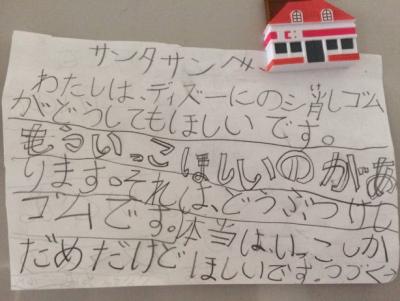 サンタサンへ
わたしは、ディズーにのシ消しゴム
がどうしてもほしいです。
もういっこほしいのがあ
ります。それは、どうぶつけし
ゴムです。本当は、いっこしか
だめだけどほしいです。つづく→